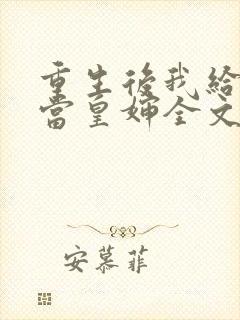 重生後我給
當皇婦全文
安慕菲